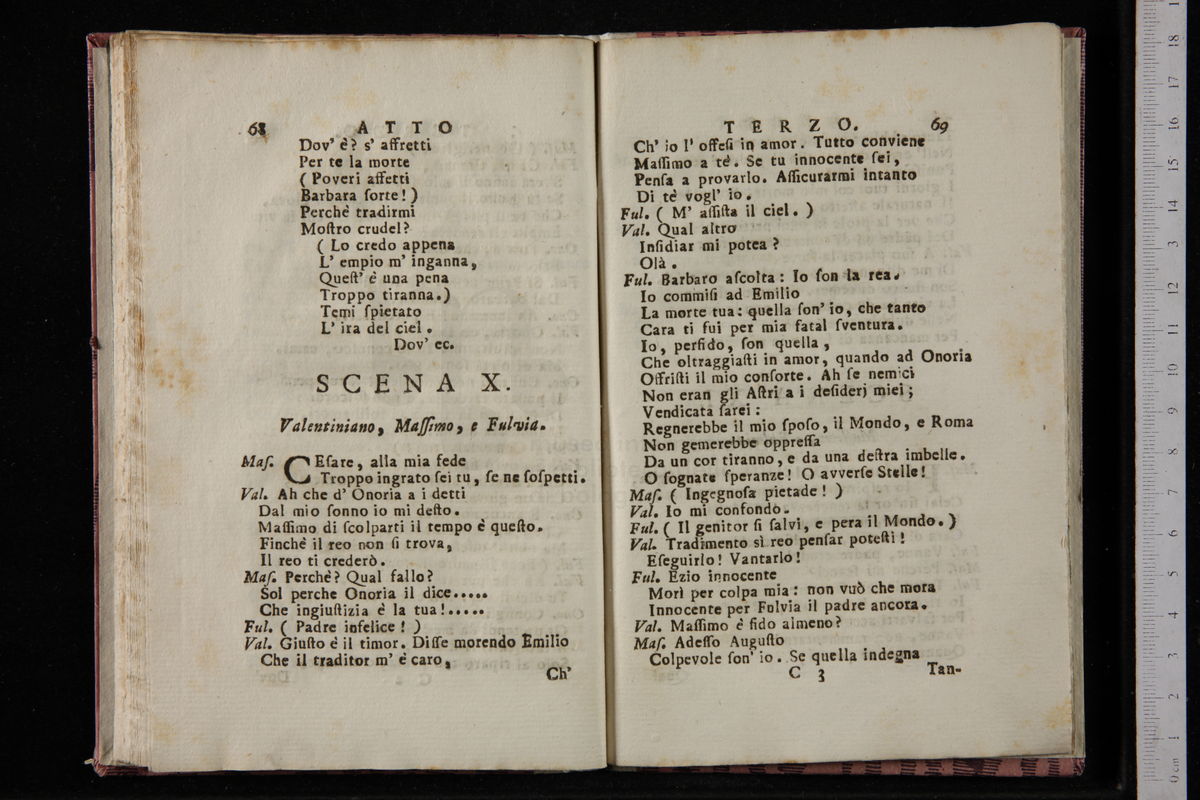 68 ATTO
Dov' è? s' affretti
Per te la morte
( Poveri affetti
Barbara ſorte! )
Perchè tradirmi
Moſtro crudel?
( Lo credo appena
L' empio m' inganna,
Queſt' è una pena
Troppo tiranna.)
Temi ſpietato
L' ira del ciel.
Dov' ec.
SCENA X.
Valentiniano, Maſſimo, e Fulvia.
Maſ. CEſare, alla mia fede
Troppo ingrato ſei tu, ſe ne ſoſpetti.
Val. Ah che d' Onoria a i detti
Dal mio ſonno io mi deſto.
Maſſimo di ſcolparti il tempo è queſto.
Finchè il reo non ſi trova,
Il reo ti crederò.
Maſ. Perchè? Qual fallo?
Sol perche Onoria il dice.....
Che ingiuſtizia è la tua!.....
Ful. ( Padre infelice! )
Val. Giuſto è il timor. Diſſe morendo Emilio
Che il traditor m' è caro,
Ch'
TERZO. 69
Ch' io l' offeſi in amor. Tutto conviene
Maſſimo a tè. Se tu innocente ſei,
Penſa a provarlo. Aſſicurarmi intanto
Di tè vogl' io.
Ful. ( M' aſſiſta il ciel. )
Val. Qual altro
Inſidiar mi potea?
Olà.
Ful. Barbaro aſcolta: Io ſon la rea.
Io commiſi ad Emilio
La morte tua: quella ſon' io, che tanto
Cara ti fui per mia fatal ſventura.
Io, perfido, ſon quella,
Che oltraggiaſti in amor, quando ad Onoria
Offriſti il mio conſorte. Ah ſe nemici
Non eran gli Aſtri a i deſiderj miei;
Vendicata ſarei:
Regnerebbe il mio ſpoſo, il Mondo, e Roma
Non gemerebbe oppreſſa
Da un cor tiranno, e da una deſtra imbelle.
O ſognate ſperanze! O avverſe Stelle!
Maſ. ( Ingegnoſa pietade! )
Val. Io mi confondo.
Ful. ( Il genitor ſi ſalvi, e pera il Mondo. )
Val. Tradimento sì reo penſar poteſti!
Eſeguirlo! Vantarlo!
Ful. Ezio innocente
Morì per colpa mia: non vuò che mora
Innocente per Fulvia il padre ancora.
Val. Maſſimo è fido almeno?
Maſ. Adeſſo Auguſto
Colpevole ſon' io. Se quella indegna
C 3 Tan-
0 cm 1 2 3 4 5 6 7 8 9 10 11 12 13 14 15 16 17 18